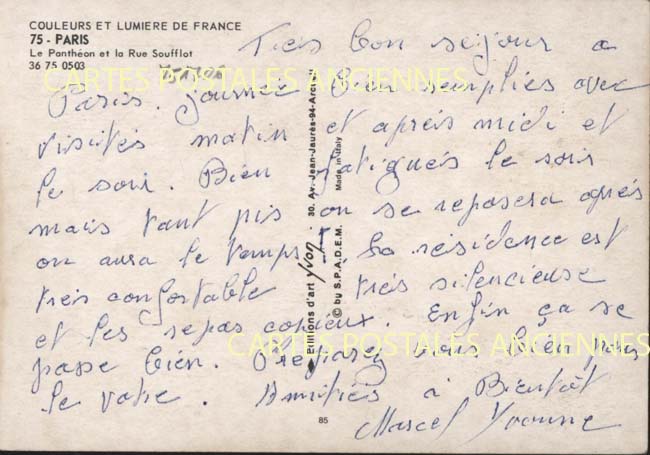 COULEURS ET LUMIERE DE FRANCE
75 - PARIS
Le Panthéon et la Rue Soufflot
36 75 0503
Très bon séjour a
Paris. Journée bien remplies avec
visités matin et après midi et
le soir. Bien fatigués le soir
mais tant pis on se reposera après
on aura le temps. La residence est
très confortable très silencieuse
et les repas copieux. Enfin ça se
passe bien. Préparez vous bien pour
le votre. Amitiés à Bientôt
Marcel Yvonne
Editions d'art yvon - 30, Av. Jean-Jaurès-94-Arcueil
© by S.P.A.D.E.M. Made in Italy
85
CARTES POSTALES ANCIENNES
CARTES POSTALES ANCIENNES